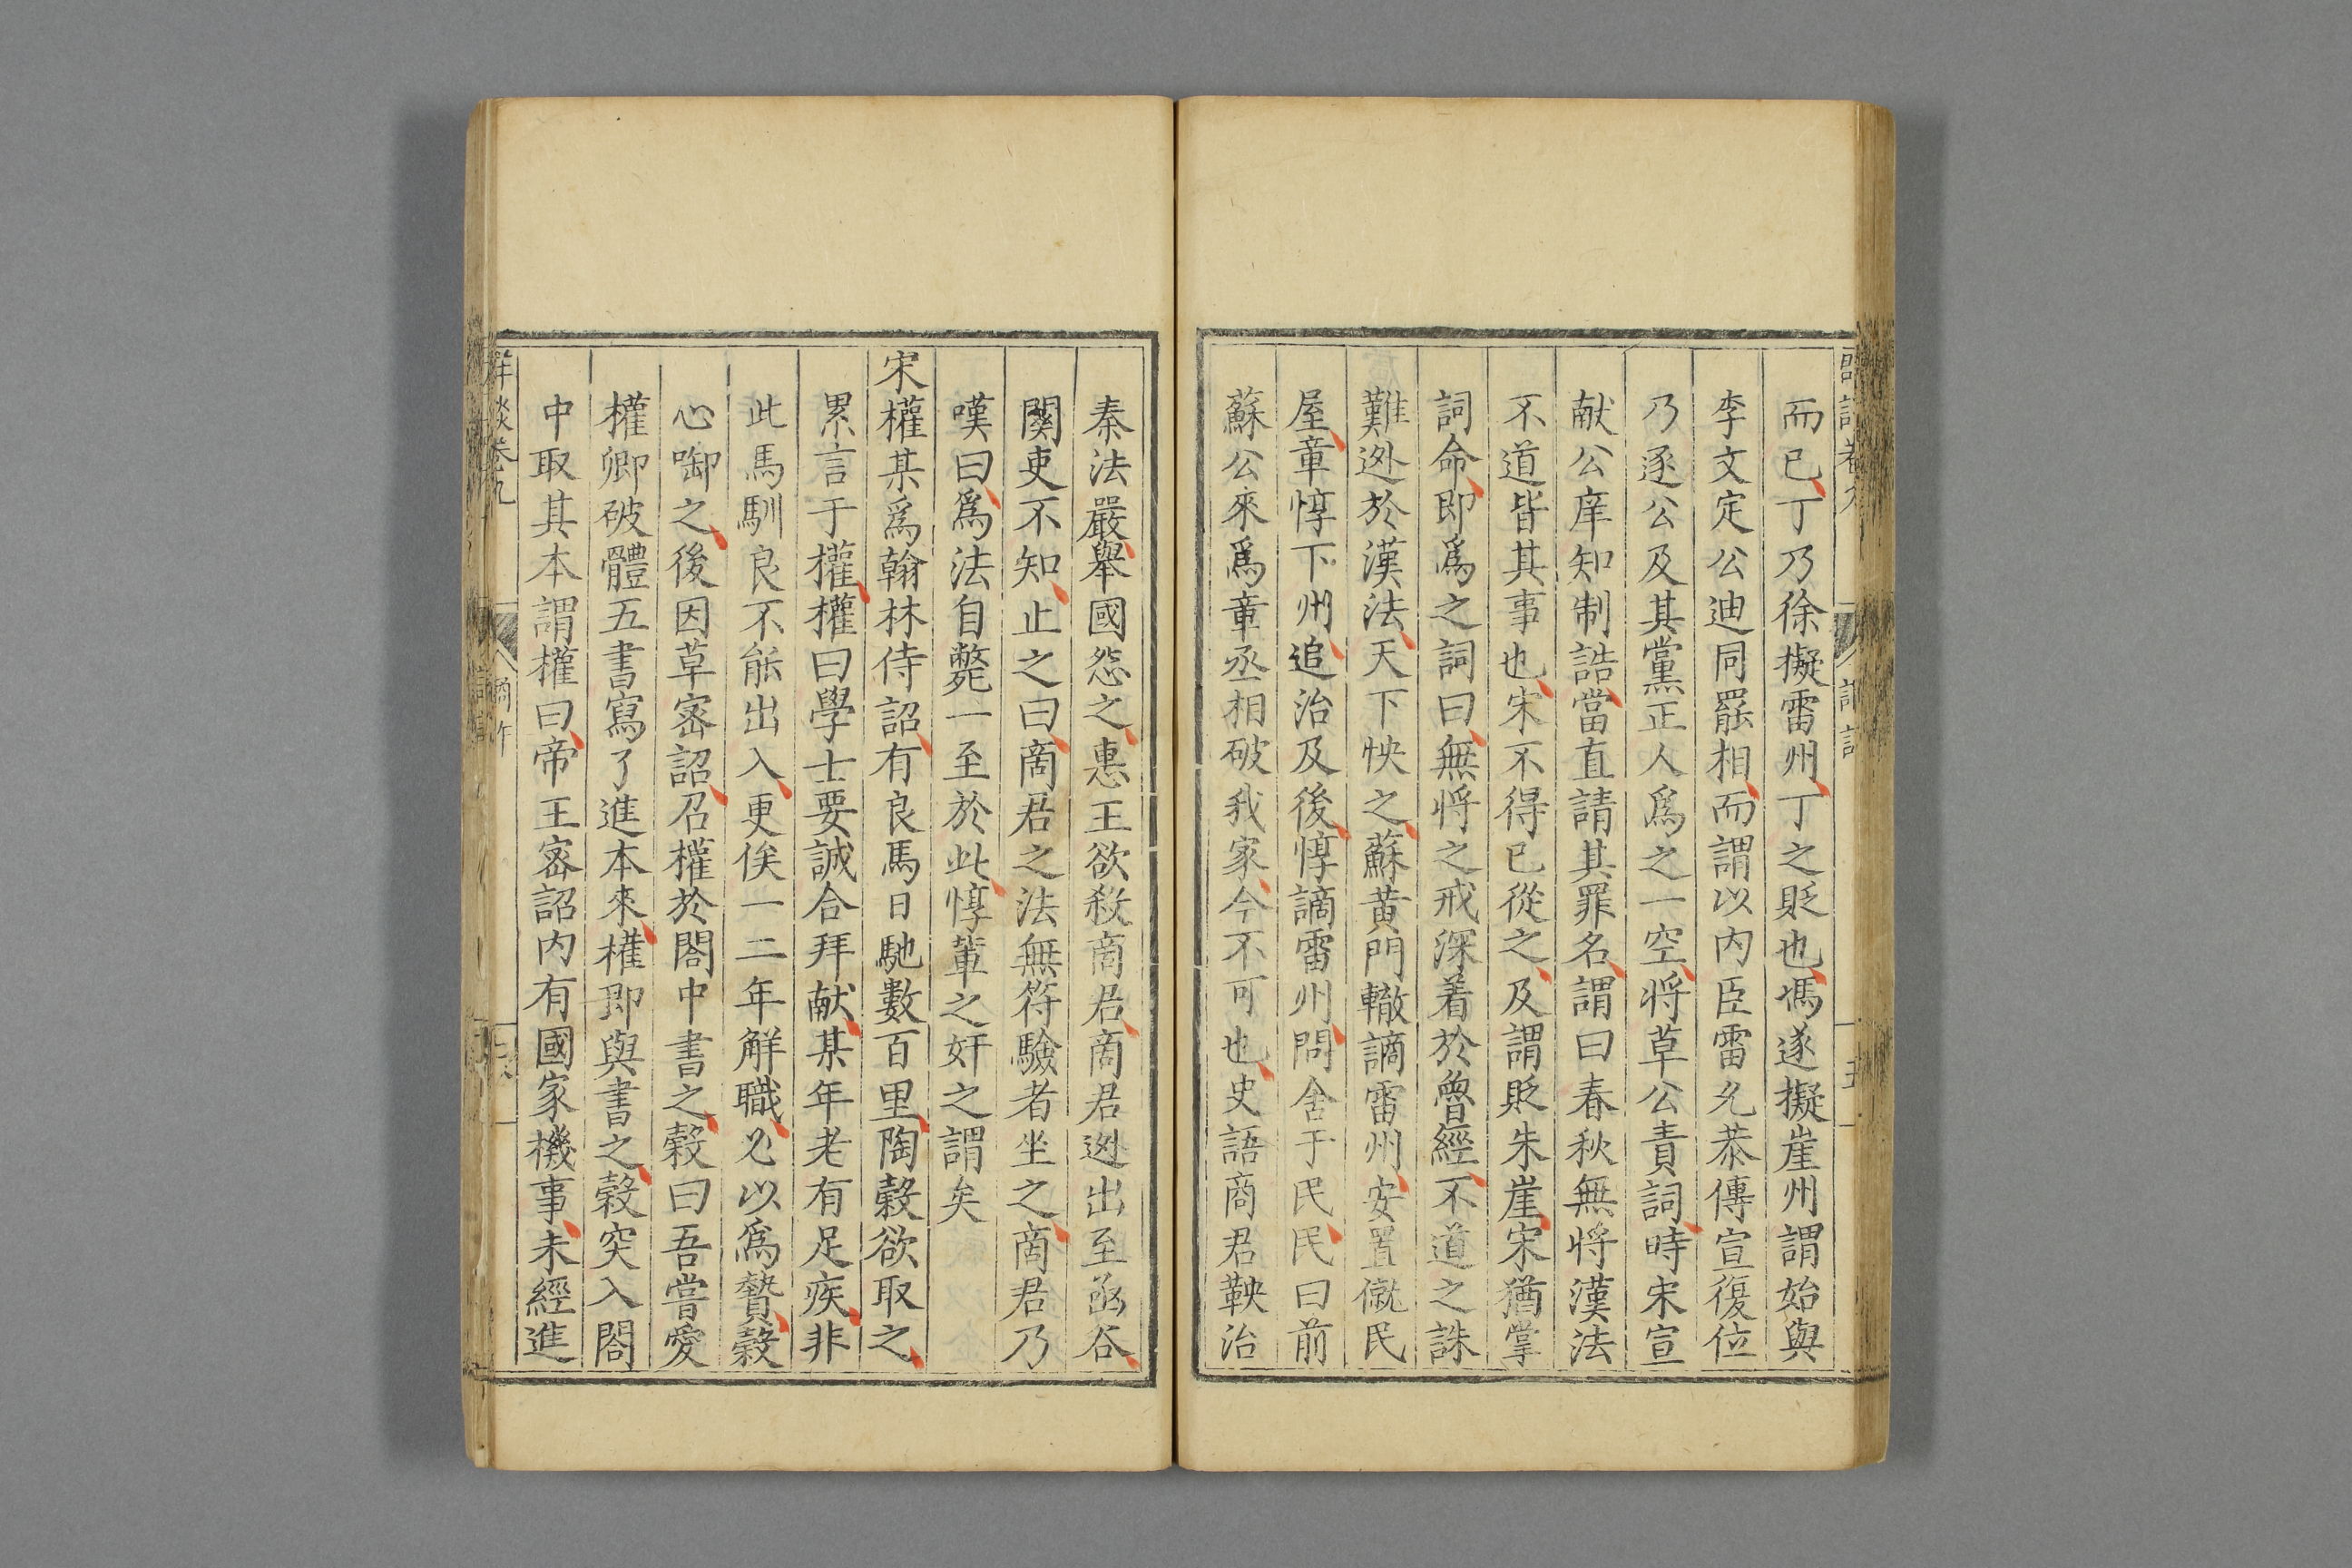 而已丁乃徐擬雷州丁之貶也馮遂擬崖州謂始與
李文定公迪同罷相而謂以内臣雷允恭傳宣復位
乃逐公及其黨正人爲之一空將草公責詞時宋宣
献公庠知制誥當直請其罪名謂曰春秋無將漢法
不道皆其事也宋不得已從之及謂貶朱崖宋猶掌
詞命即爲之詞曰無將之戒深着於魯經不道之誅
難逊於漢法天下怏之蘇黄門轍謫雷州安置僦民
屋章惇下州追治及後惇謫雷州問舍于民民曰前
蘇公來爲章丞相破我家今不可也史語商君鞅治
秦法嚴舉國怨之惠王欲殺商君商君逊出至函谷
関吏不知止之曰商君之法無符驗者坐之商君乃
嘆曰爲法自斃一至於此惇輩之奸之謂矣
宋權某爲翰林侍詔有良馬日馳數百里陶穀欲取之
累言于權權曰學士要誠合拜献某年老有足疾非
此馬馴良不能出入更俟一二年解職必以爲贄穀
心啣之後因草密詔召權於閤中書之穀曰吾嘗愛
權卿破體五書寫了進本來權即與書之穀突入閤
中取其本謂權曰帝王密詔内有國家機事未經進